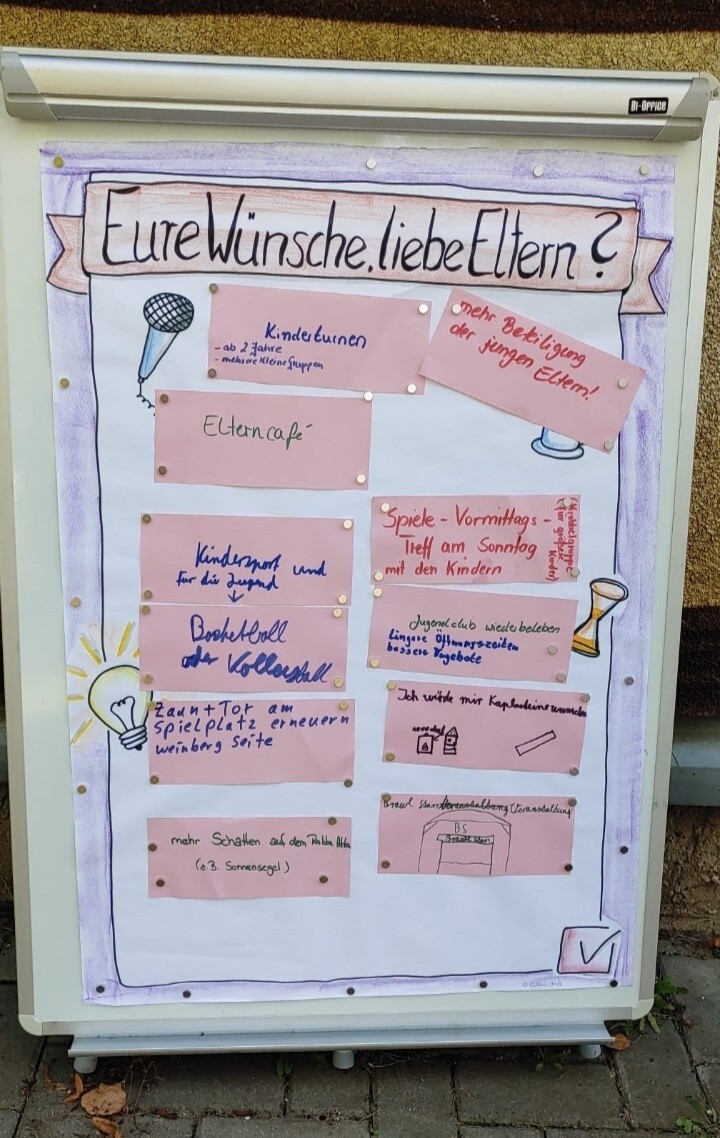 Bi-Office
Eure Wünsche, liebe Eltern?
Kinderturnen
- ab 2 Jahre
- mehrere Kleine Gruppen
mehr Beteiligung
der jungen Eltern!
Elterncafé
Spiele - Vormittags -
Treff am Sonntag
mit den Kindern
für größere
Kinder)
Kindersport und
für die Jugend
Basketball
oder Volleyball
Jugendclub wiederbeleben
längere Öffnungszeiten
bessere Angebote
Zaun + Tor am
Spielplatz erneuern
weinberg seite
Ich würde mir Kaplasteine wünschen
Brawl Stars Veranstaltung
BS
Brawl Stars
mehr Schatten auf dem
(z.B. Sonnensegel)